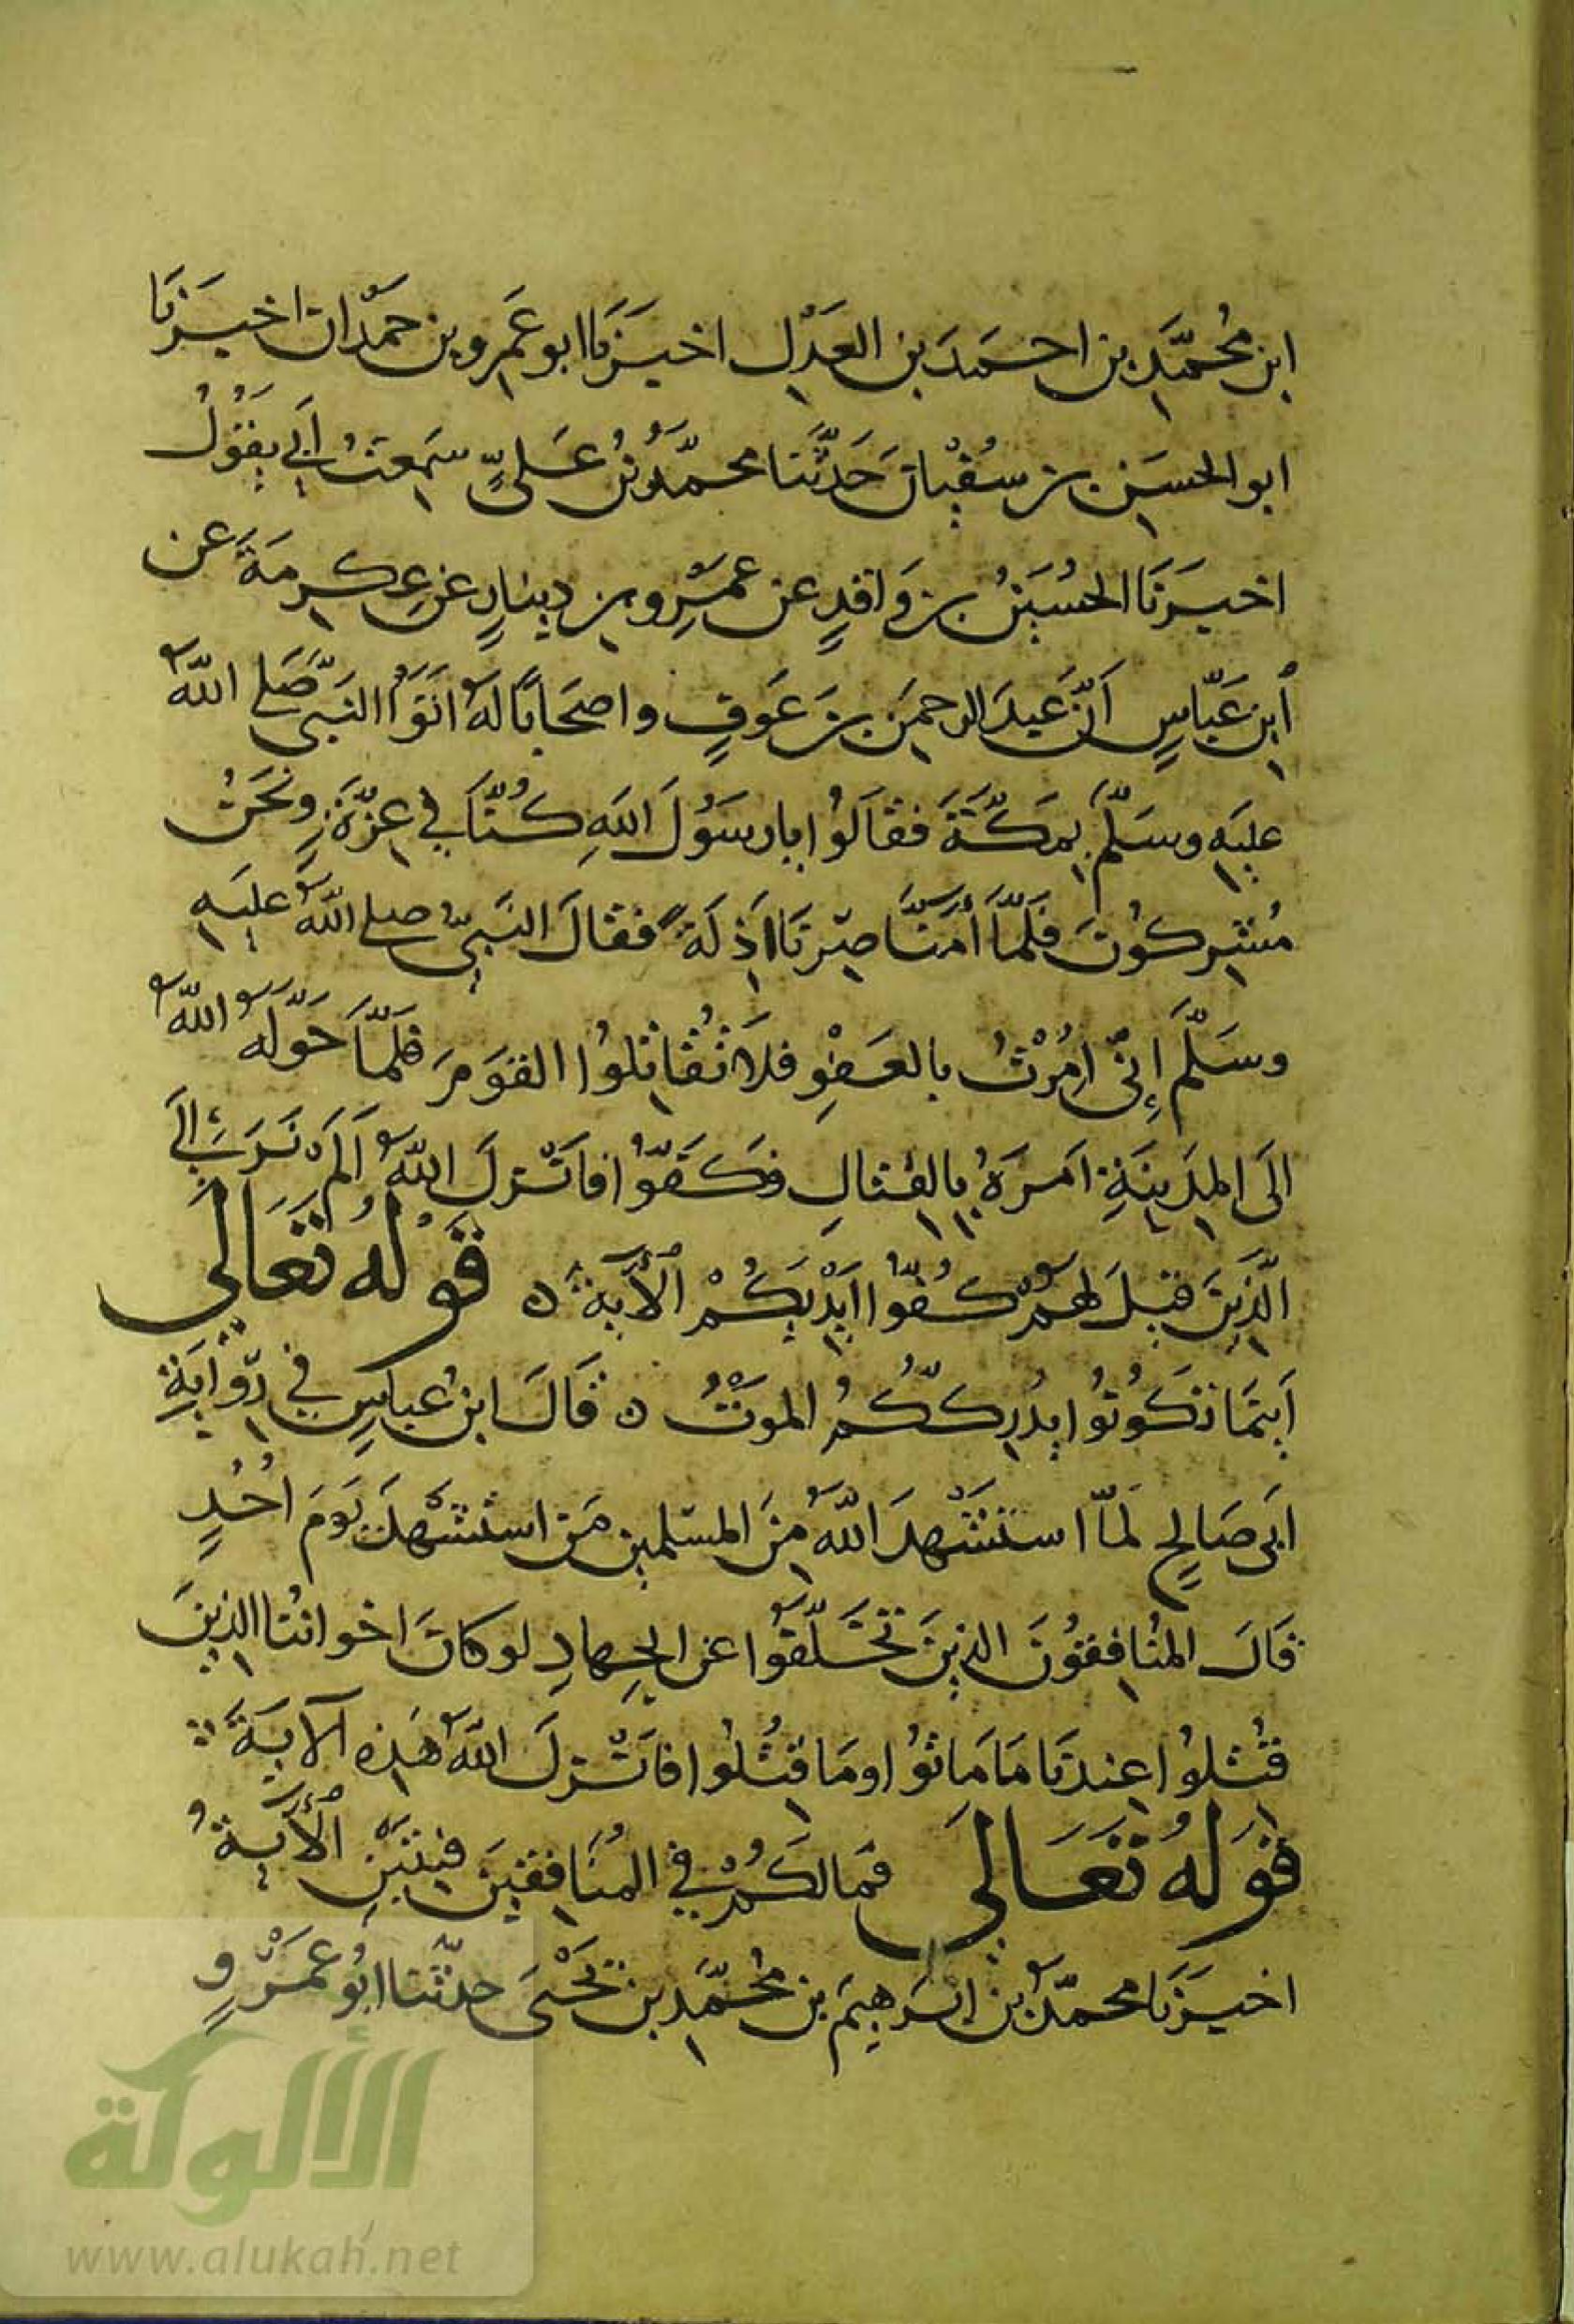 ابن مُحمَّدِ بن احمَدَ بن العَدْلِ اخبَرَنَا ابو عَمرِو بن حَمْدَان اخبَرَنَا
ابو الحسَين بن سُفْيَانَ حَدَّثَنَا محمَّدُ بْنُ عَلىٍّ سَمِعتُ اَبِي يَقُوْلُ
اخبَرَنَا الحُسَيْنُ بن وَاقدٍ عن عمْرِو بن دِينَارٍ عن عِكرِمَةَ عن
اُبنِ عَبّاسٍ اَنَّ عَبدَ الرحمَن بنَ عَوفٍ واصحَابًا لهُ اَتَوْا النَبىَّ صَلى اللّٰهُ
عليَهِ وسَلّمَ بمَكّةَ فقَالَوُا يا رسَوُلَ اللهِ كُنَّا في عِزّةٍ وَنَحْنُ
مُشرِكوُنَ فلَمَّا اٰمَنَّا صِرْنَا اَذِلَةً فقالَ النَبىُّ صلى اللّٰهُ عليَهِ
وسَلَّمَ اِنّىِ اُمِرْتُ بالعَفْوِ فلَا تُقاتلوُا القَوَمَ فلَمّاَ حَوّلهُ اللّٰهُ
الَى المدِينَةِ اَمرَهُ بالقتالِ فكَفّوُا فاَنْزلَ اللّٰهُ اَلَم تَرَ اِلَى
الّذِيْنَ قيلَ لهُمْ كُفُّوْا اَيْدِيَكُمْ الْاٰيَة ۞ قَوْلهُ تَعَالٰى
اَينَمَا تَكُوْنُوْا يُدْرِككُّمُ المَوتُ ۞ قَالَ ابنُ عباسٍ في رِوَايَةِ
ابَى صَالحٍ لَمّا استَشْهدَ اللّٰهُ مِنَ المسْلمين مَن استشْهدَ يَوْمَ اُحُدٍ
قَالَ المُنَافِقُوُنَ الذينَ تَخَلَّفوُا عن الجِهادِ لو كانَ اخوانُنَا الذِينَ
قُتلوُا عِندنَا مَا مَاتوُا ومَا قُتِلُوا فاَنْزلَ اللّٰهُ هٰذِه الآيَةَ
قَوْلهُ تَعَالٰى فمَا لكُمْ فِي المُنَافِقِيْنَ فِئتَيْنِ الْاٰيَة
اخبَرَنَا محمّدُ بن اِبرَهِيمَ بن مُحَمَّدِ بن يَحْيَى حدّثَنَا ابُو عمَرْوٍ
الألوكة
www.alukah.net